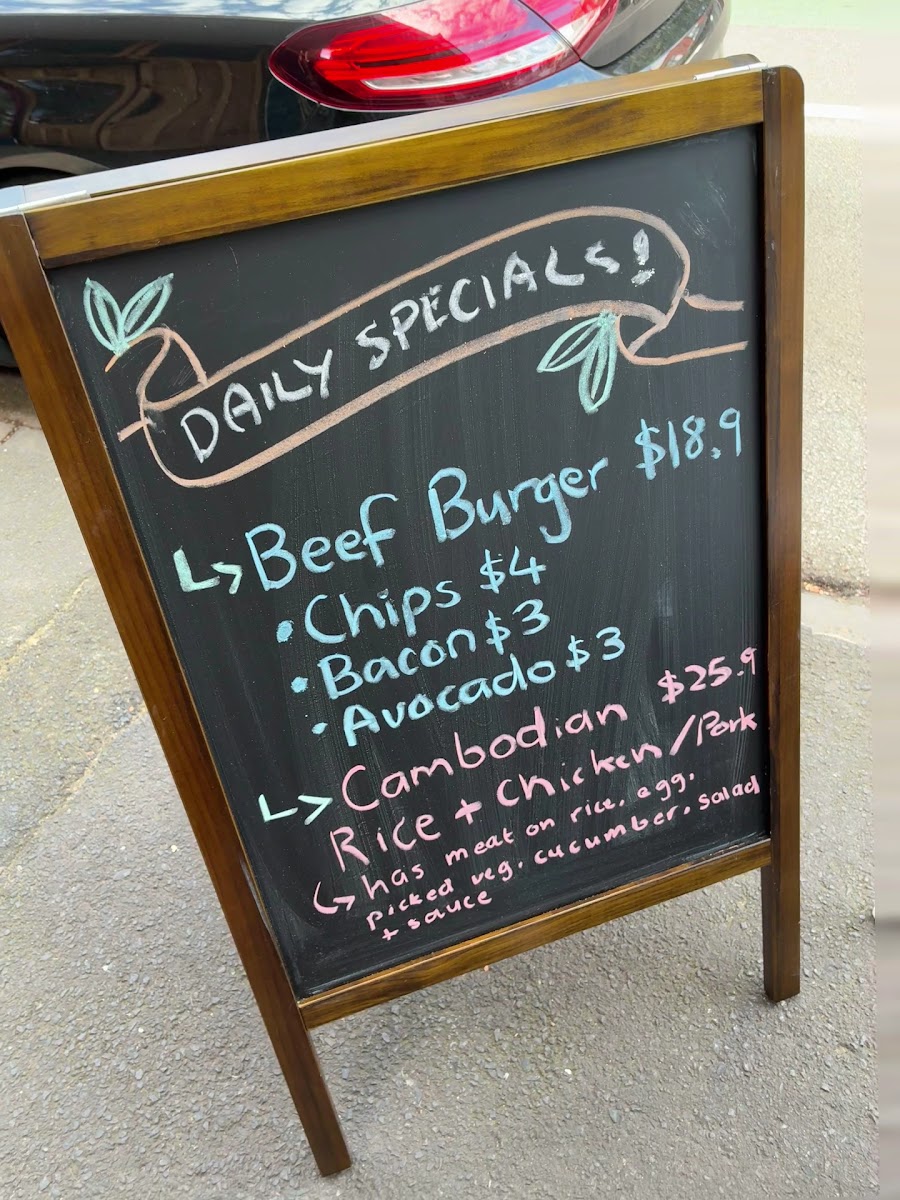 DAILY SPECIALS!
Beef Burger $18.9
• Chips $4
• Bacon $3
• Avocado $3
Cambodian $25.9
Rice + Chicken/Pork
has meat on rice. egg.
picked veg. cucumber. salad
+ sauce